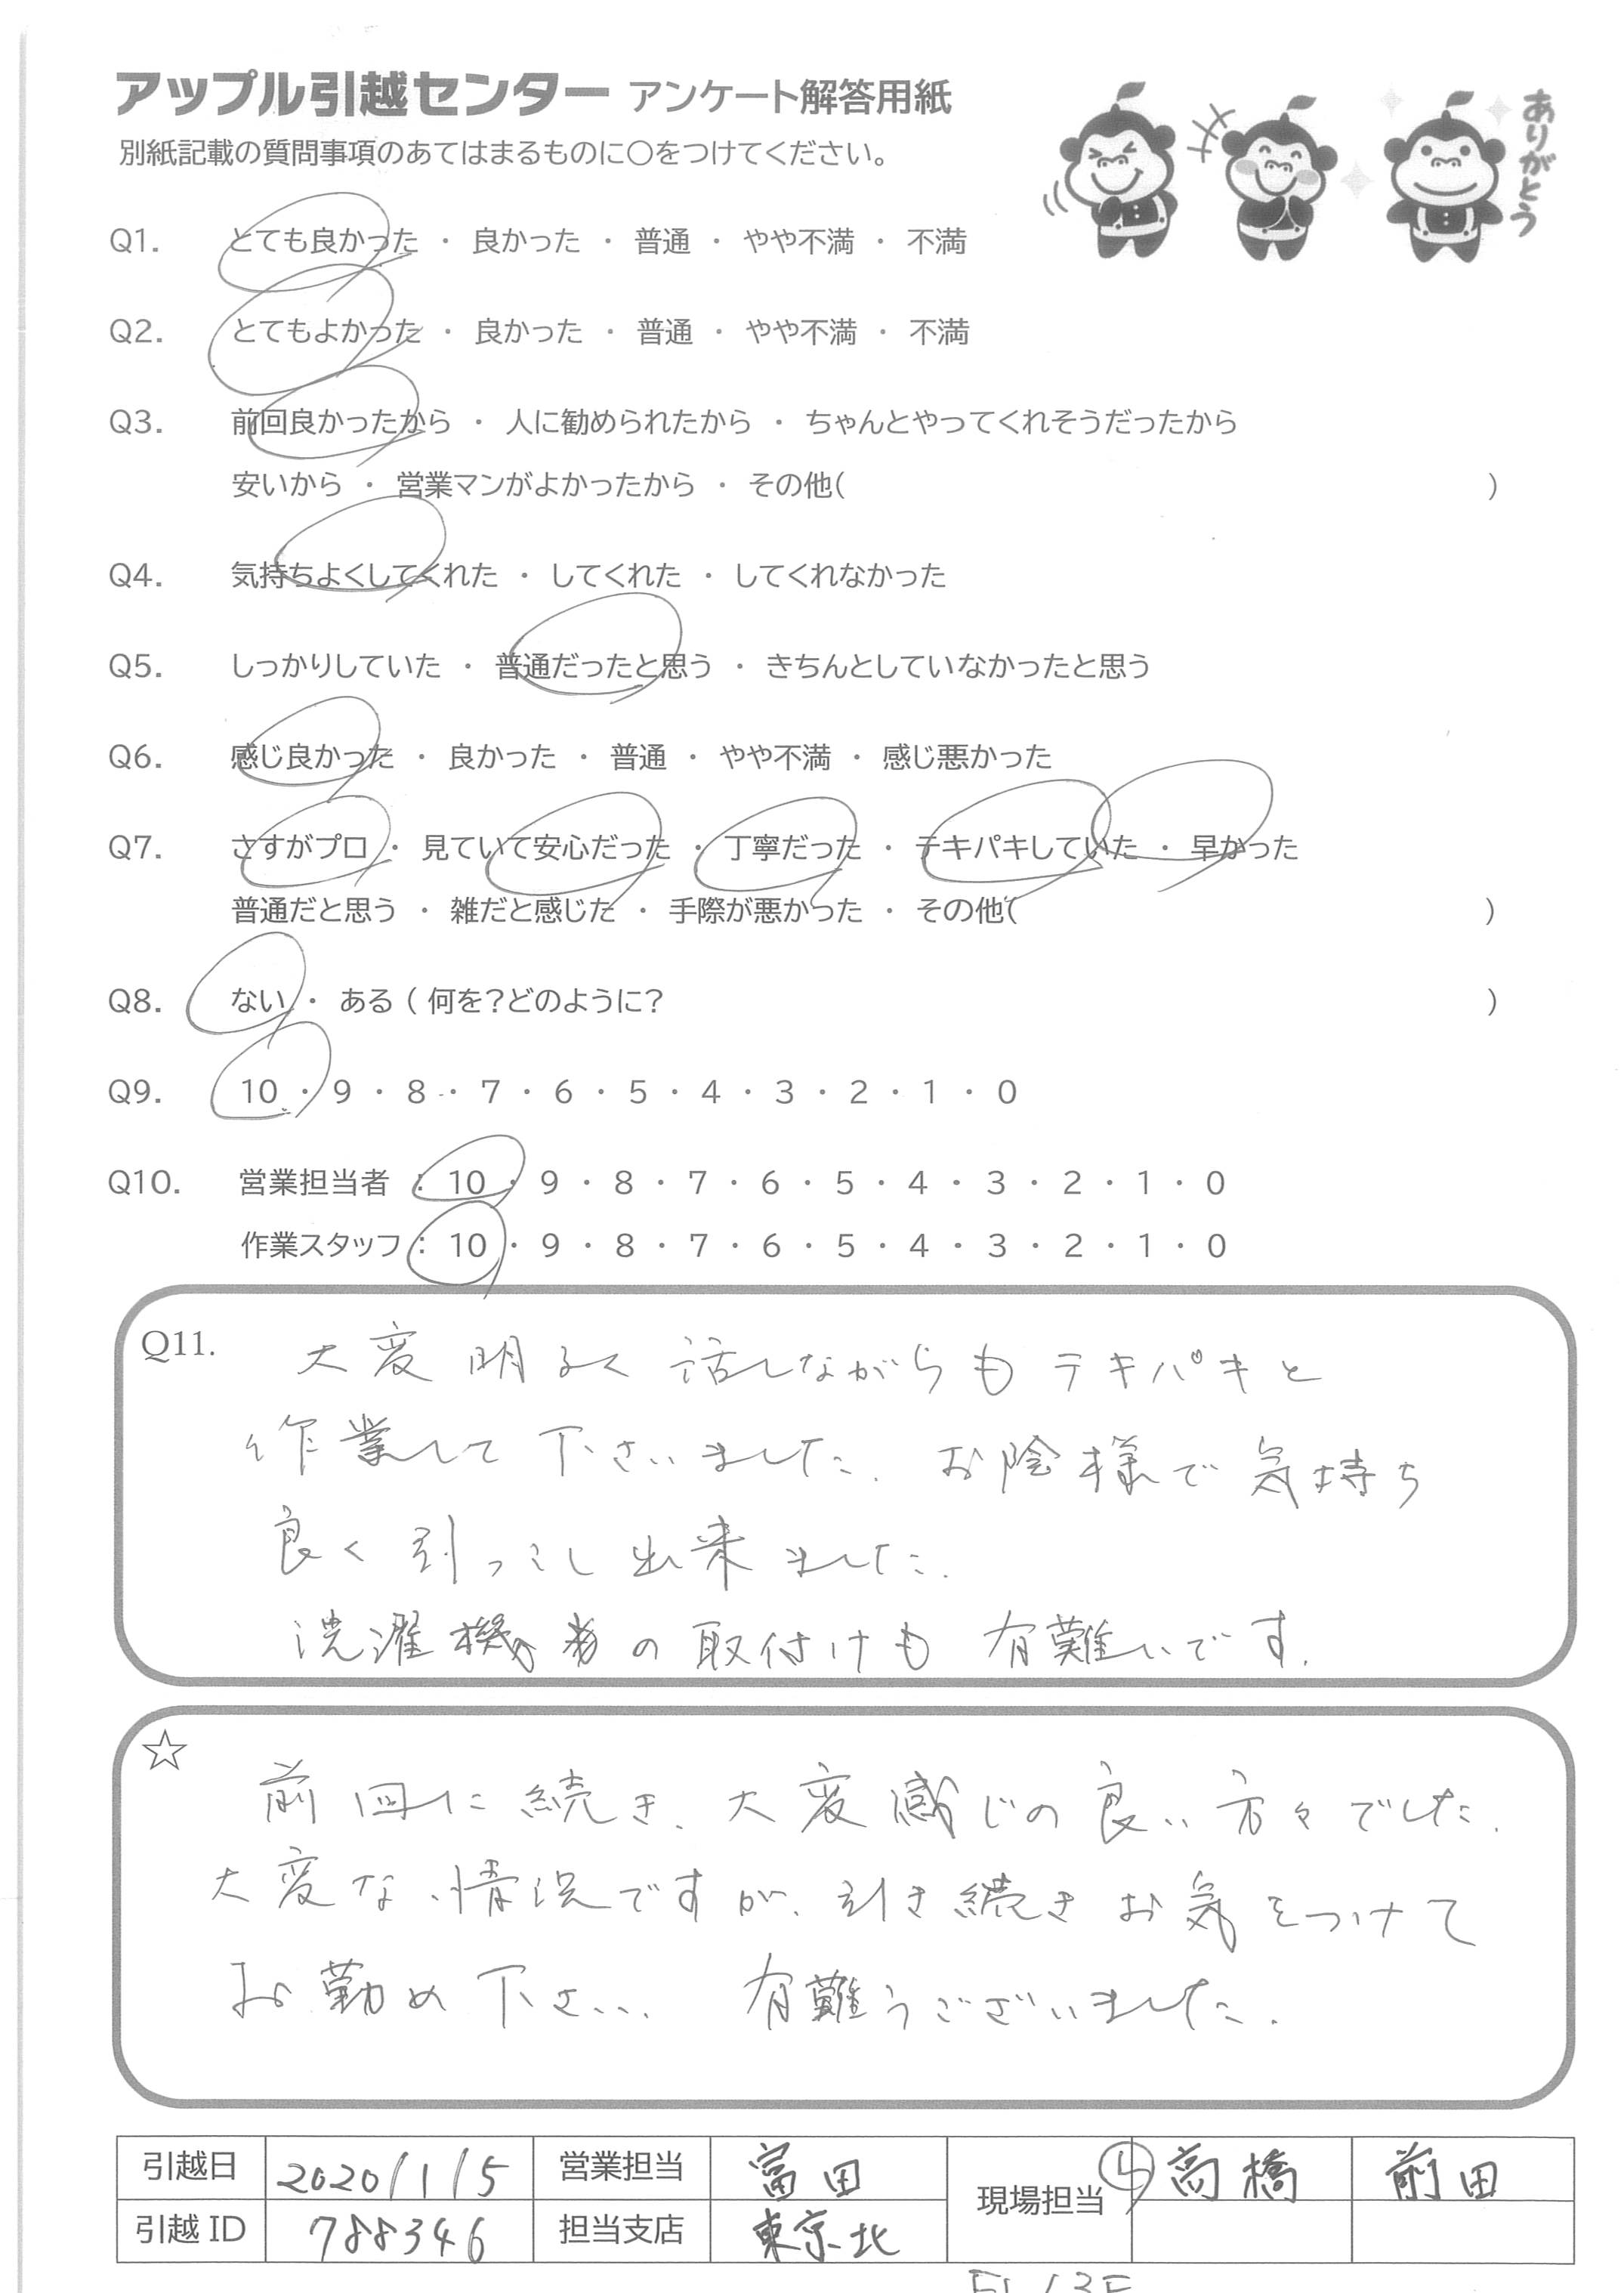 アップル引越センター アンケート解答用紙
別紙記載の質問事項のあてはまるものに○をつけてください。
ありがとう
Q1. とても良かった ・ 良かった ・ 普通 ・ やや不満 ・ 不満
Q2. とてもよかった ・ 良かった ・ 普通 ・ やや不満 ・ 不満
Q3. 前回良かったから ・ 人に勧められたから ・ ちゃんとやってくれそうだったから
安いから ・ 営業マンがよかったから ・ その他( )
Q4. 気持ちよくしてくれた ・ してくれた ・ してくれなかった
Q5. しっかりしていた ・ 普通だったと思う ・ きちんとしていなかったと思う
Q6. 感じ良かった ・ 良かった ・ 普通 ・ やや不満 ・ 感じ悪かった
Q7. さすがプロ ・ 見ていて安心だった ・ 丁寧だった ・ テキパキしていた ・ 早かった
普通だと思う ・ 雑だと感じた ・ 手際が悪かった ・ その他( )
Q8. ない ・ ある ( 何を?どのように? )
Q9. 10 ・ 9 ・ 8 ・ 7 ・ 6 ・ 5 ・ 4 ・ 3 ・ 2 ・ 1 ・ 0
Q10. 営業担当者 : 10 ・ 9 ・ 8 ・ 7 ・ 6 ・ 5 ・ 4 ・ 3 ・ 2 ・ 1 ・ 0
作業スタッフ : 10 ・ 9 ・ 8 ・ 7 ・ 6 ・ 5 ・ 4 ・ 3 ・ 2 ・ 1 ・ 0
Q11. 大変明るく話しながらもテキパキと
作業して下さいました。お陰様で気持ち
良く引っこし出来ました。
洗濯機の取付けも有難いです。
☆ 前回に続き、大変感じの良い方々でした。
大変な情況ですが、引き続きお気をつけて
お勤め下さい。 有難うございました。
引越日 2020/1/5 営業担当 富田 現場担当 高橋 前田
引越ID 788346 担当支店 東京北